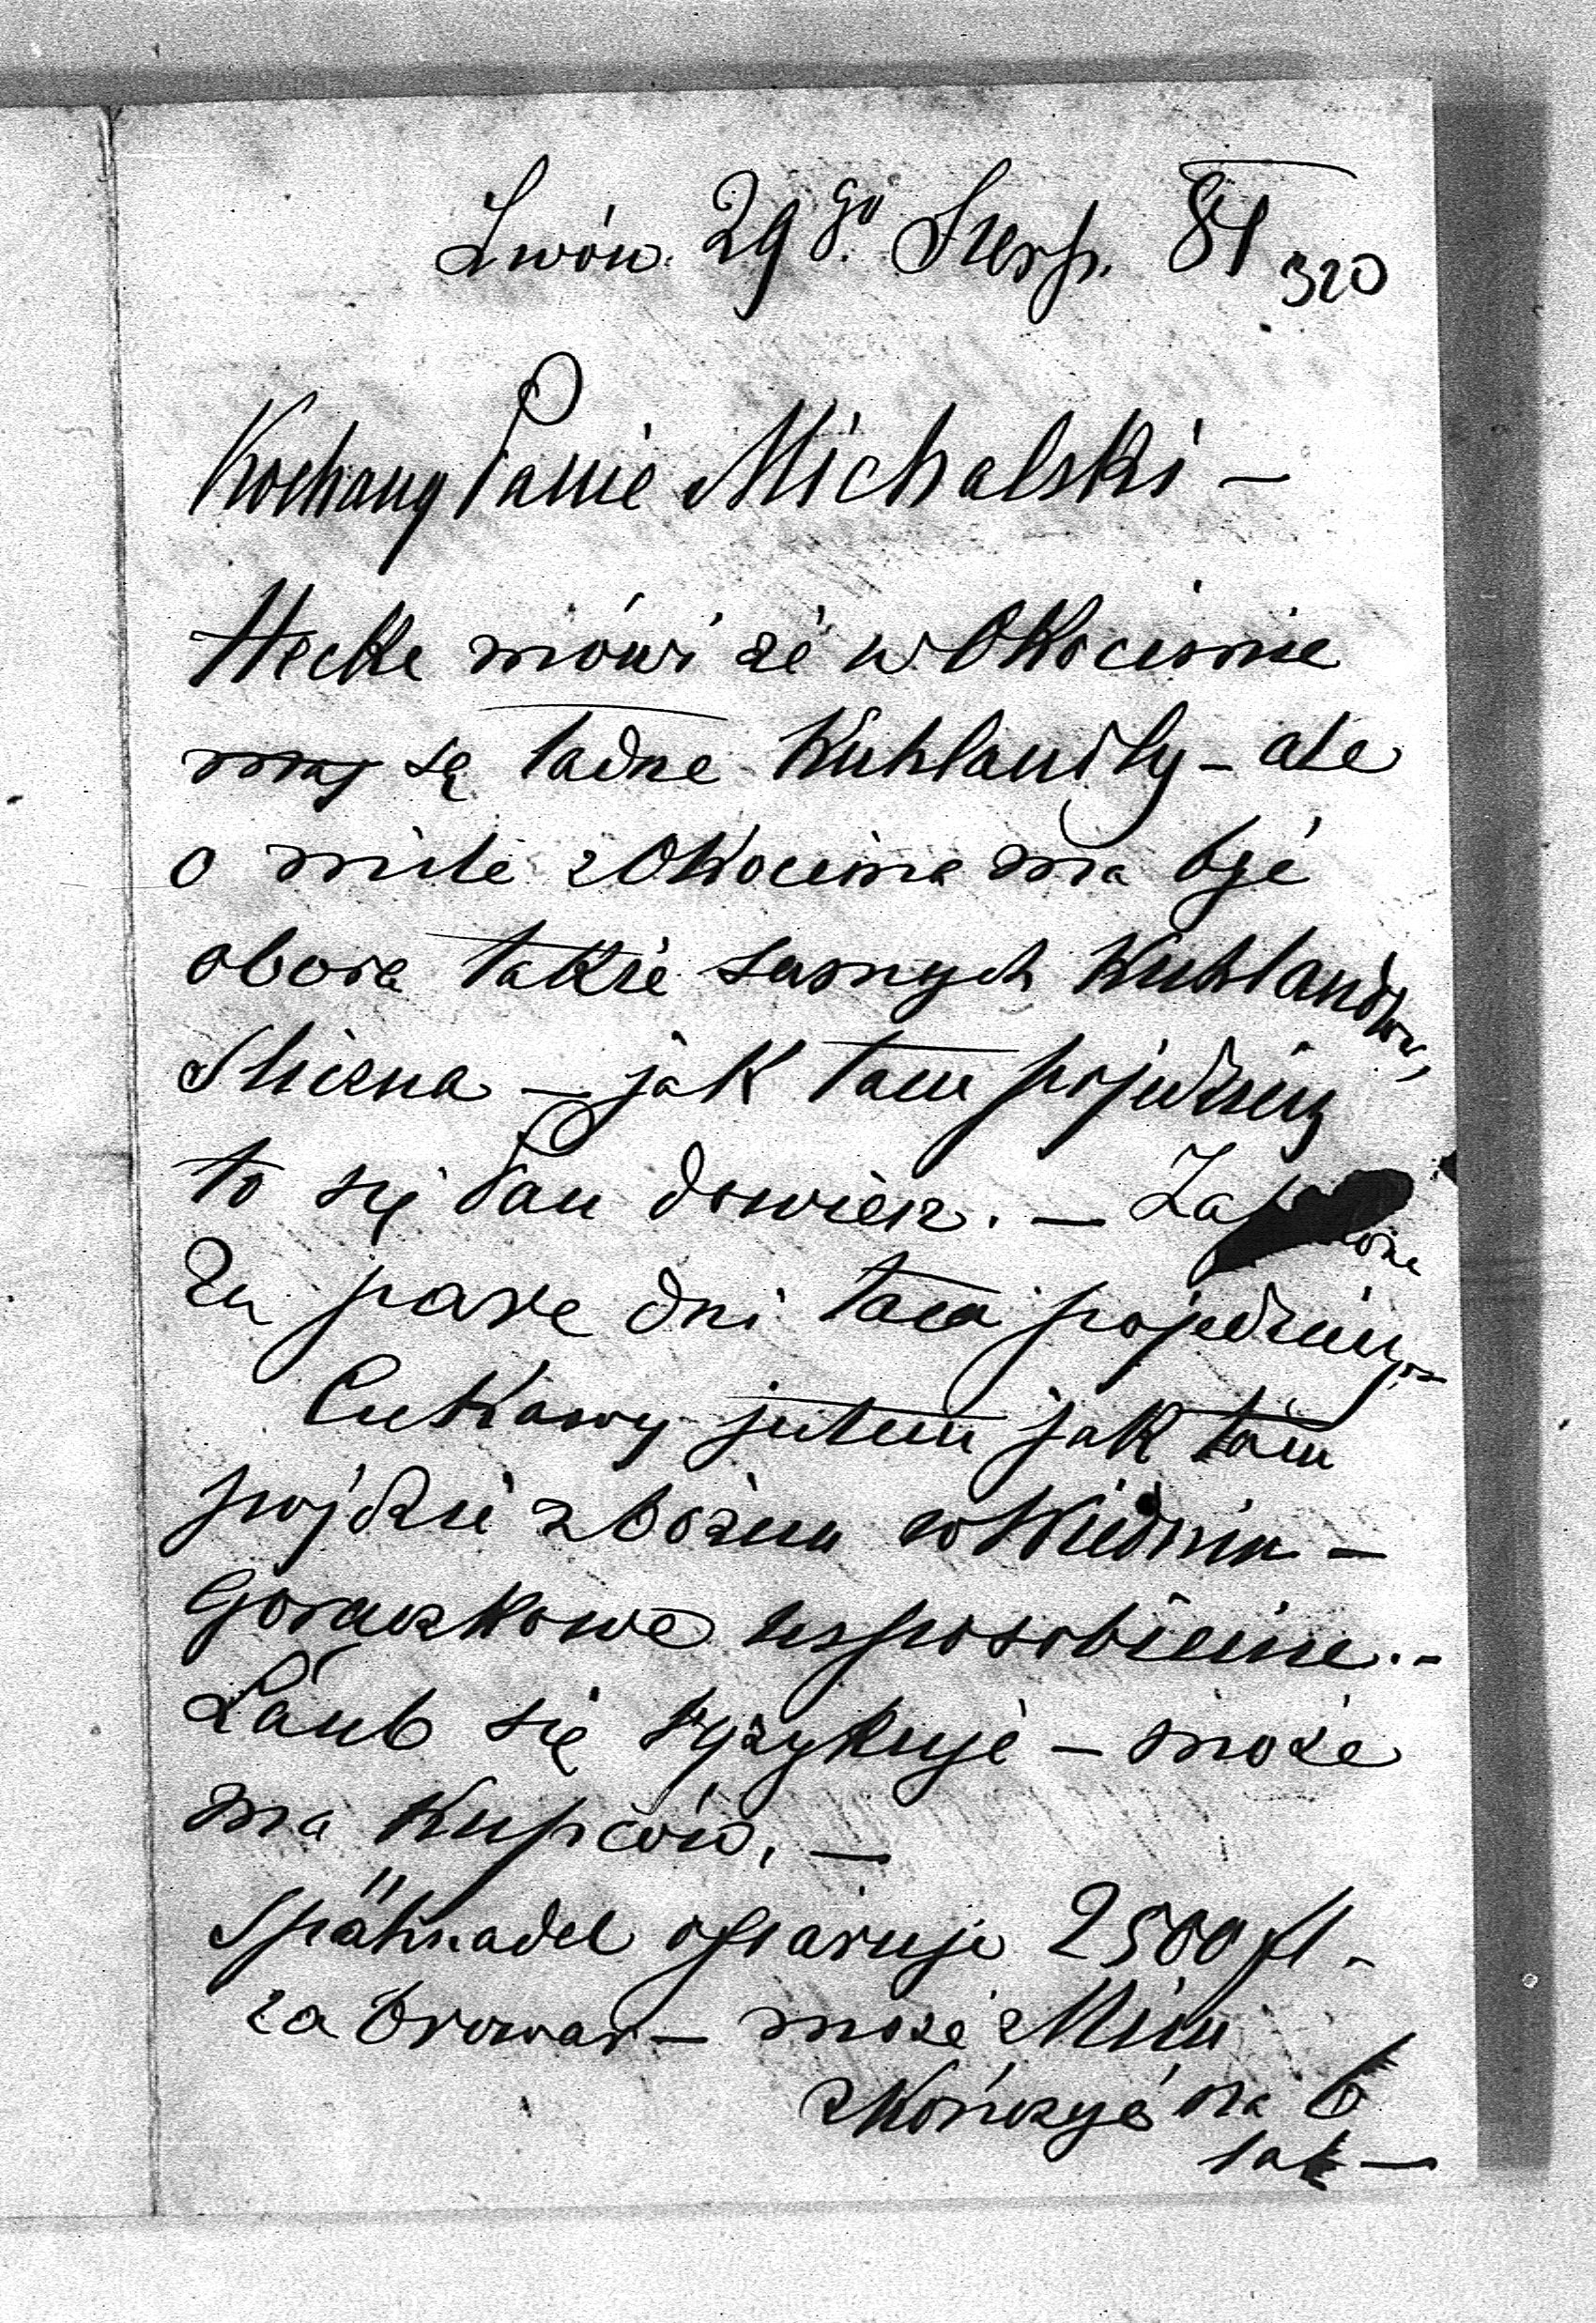 Lwów. 29go Sierp. 81
320
Kochany Panie Michalski —
Hecke mówi że w Okocimie
są ładne Kuhlandy — ale
o mile z Okocima ma być
obora także samych Kuhlandów,
śliczna — jak tam pojedziem
to się Pan dowiesz. —
Za pare dni tam pojedziemy. —
Ciekawy jestem jak tam
pójdzie zbożem w Wiedniu —
Gorączkowe usposobienie. —
Laub się ryzykuje — może
ma kupców, —
Späthnadel ofiaruje 2500 fl —
za browar — może z Nim
skończyć na 6
lat —